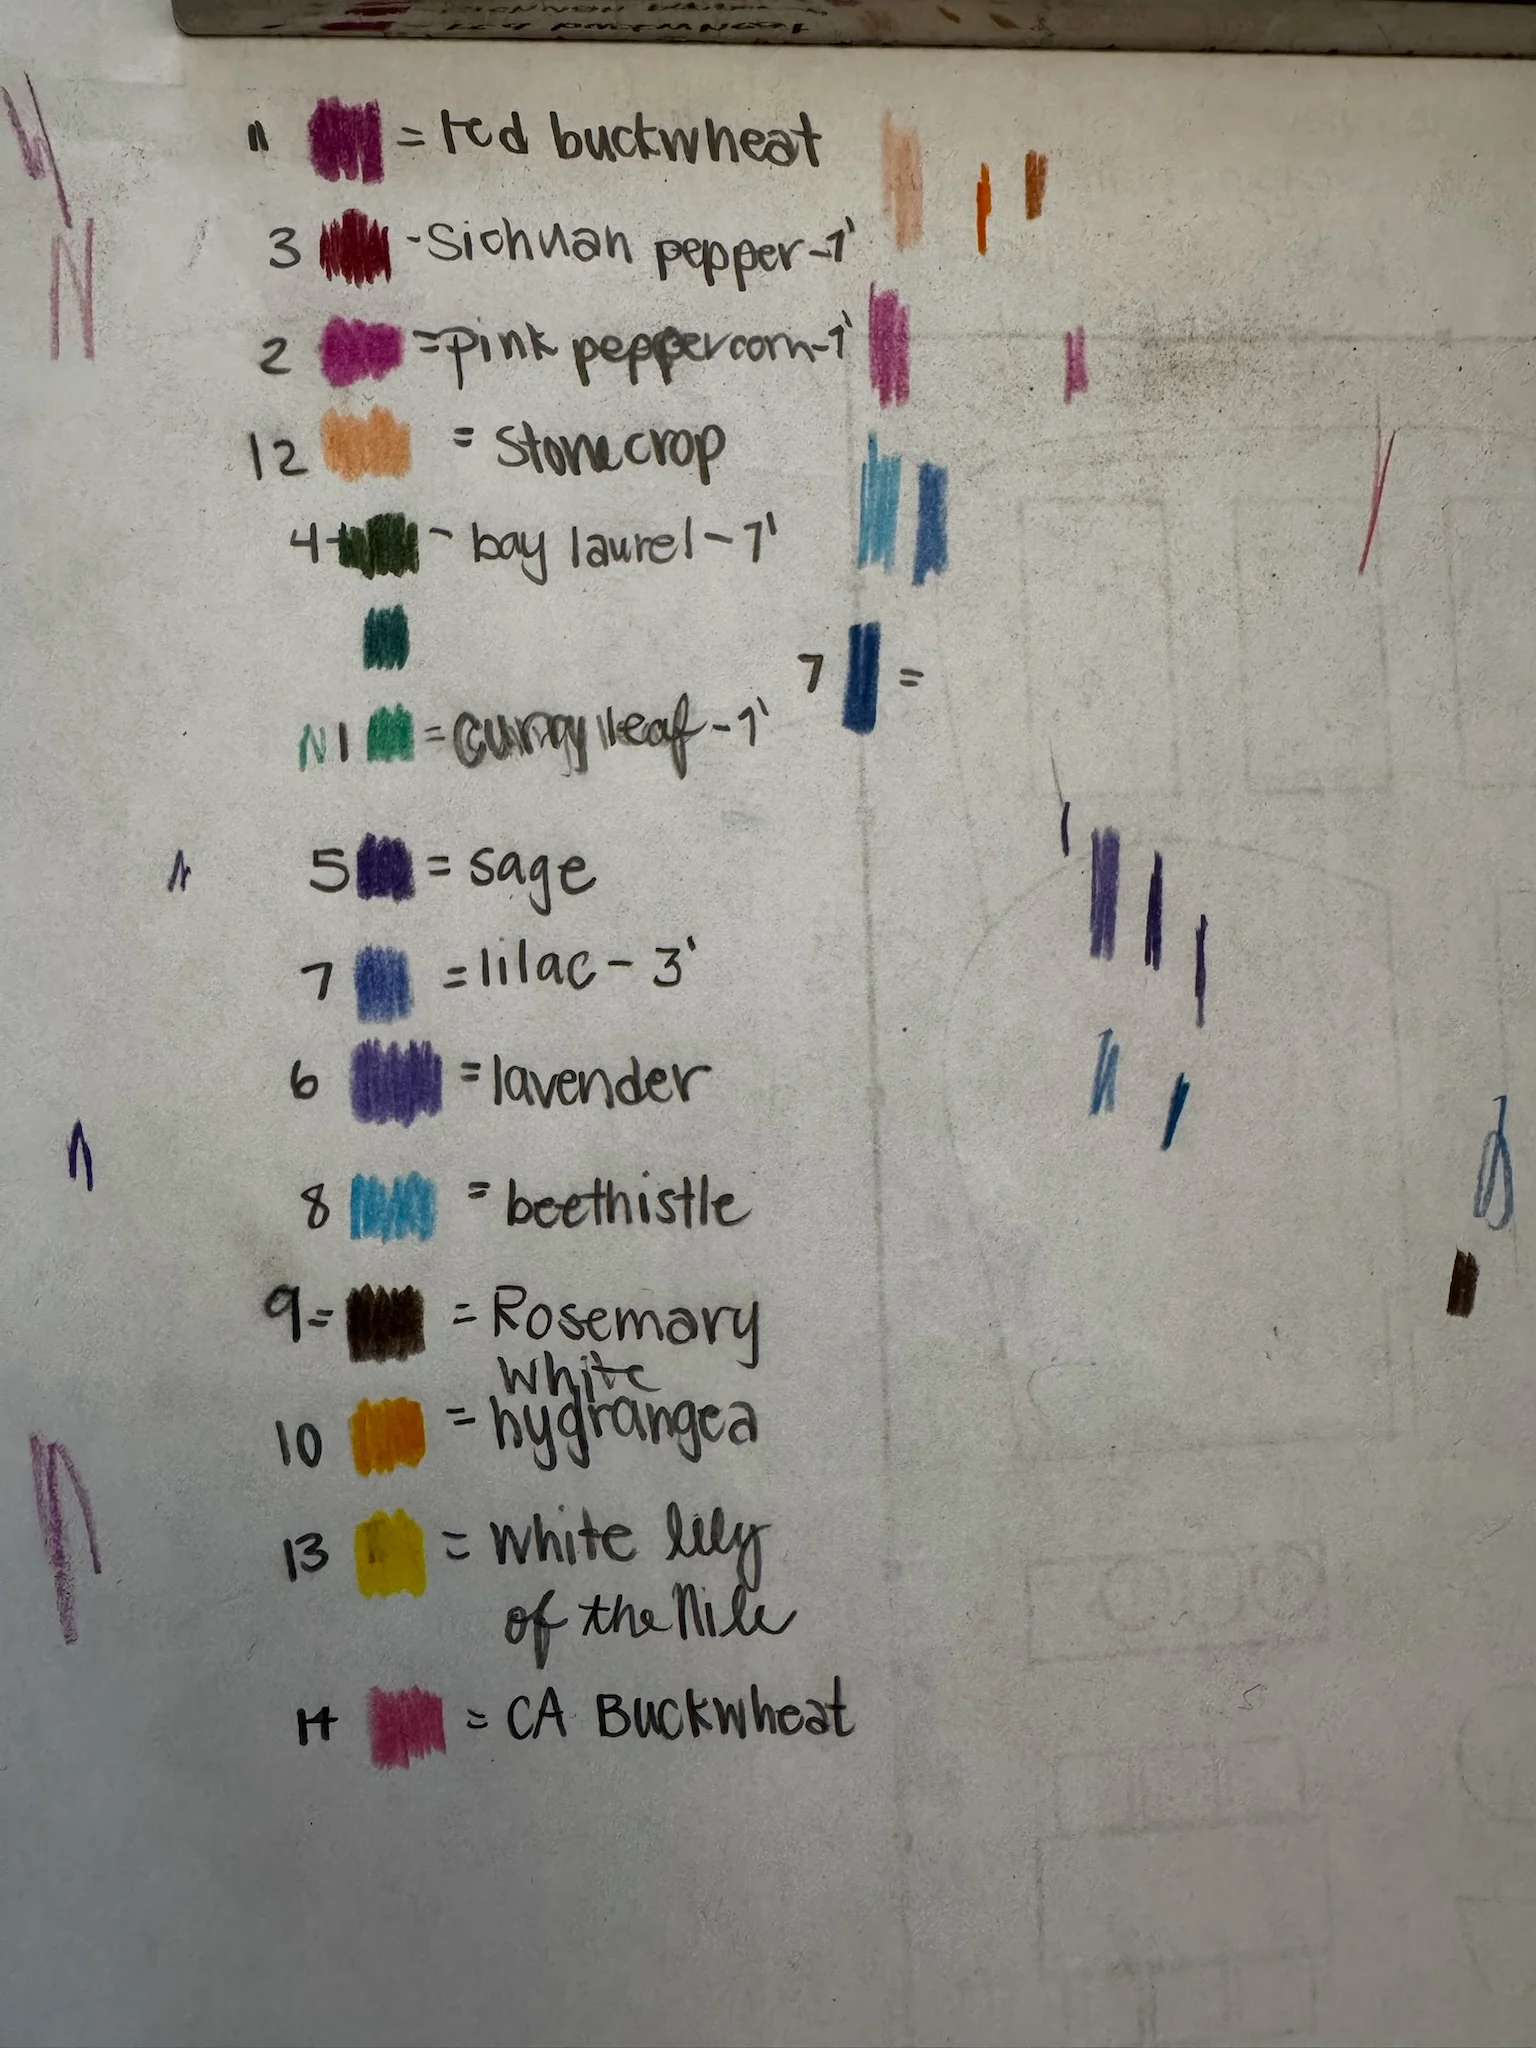 11 = red buckwheat
3 - Sichuan pepper - 1'
2 = pink peppercorn - 1'
12 = stonecrop
4 - bay laurel - 7'
7 =
N 1 = curry leaf - 1'
5 = sage
7 = lilac - 3'
6 = lavender
8 = beethistle
9 = = Rosemary
white
10 = hygrangea
13 = white lily
of the Nile
14 = CA Buckwheat